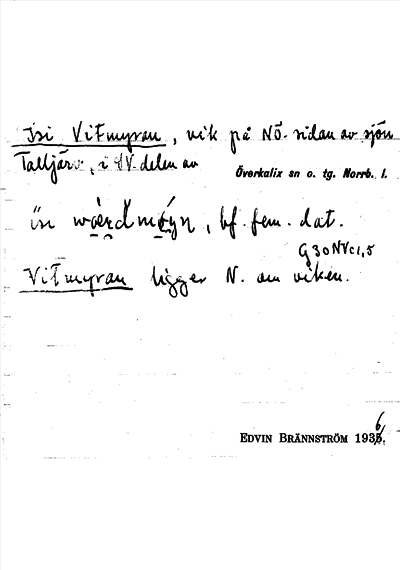 Isi Vitmyran, vik på NÖ-sidan av sjön
Talljärv, i SV delen av
Överkalix sn o. tg. Norrb. l.
, bf. fem. dat.
G30NVc1,5
Vitmyran ligger N. om viken.
EDVIN BRÄNNSTRÖM 1936.